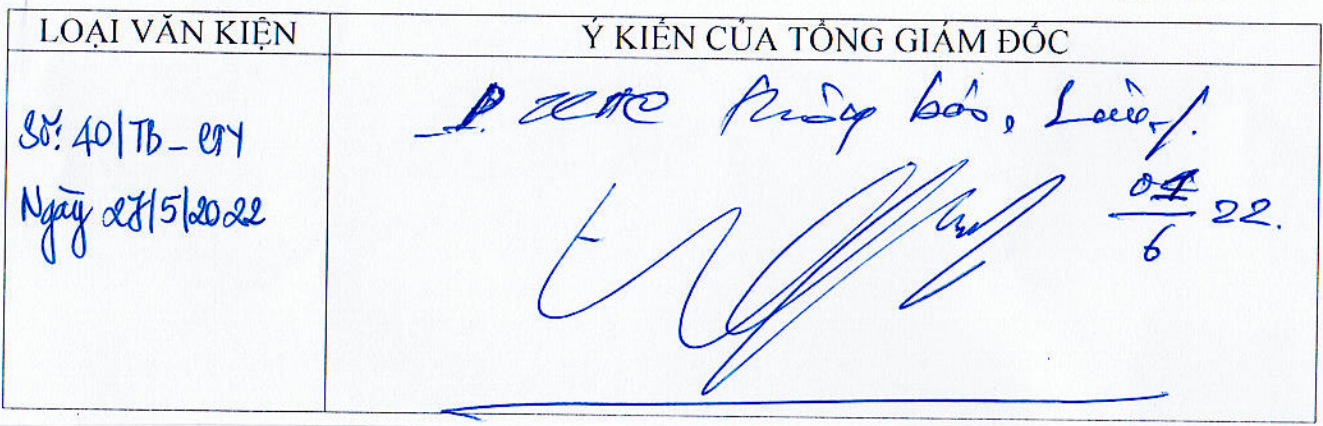 LOẠI VĂN KIỆN
Ý KIẾN CỦA TỔNG GIÁM ĐỐC
Số: 40/TB_CTY
Ngày 27/5/2022
P. TCHC thông báo, Lưu./.
01/6 22.